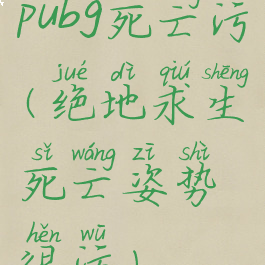 pubg死亡污
jué dì qiú shēng
(绝地求生
sǐ wáng zī shì
死亡姿势
hěn wū
很污)